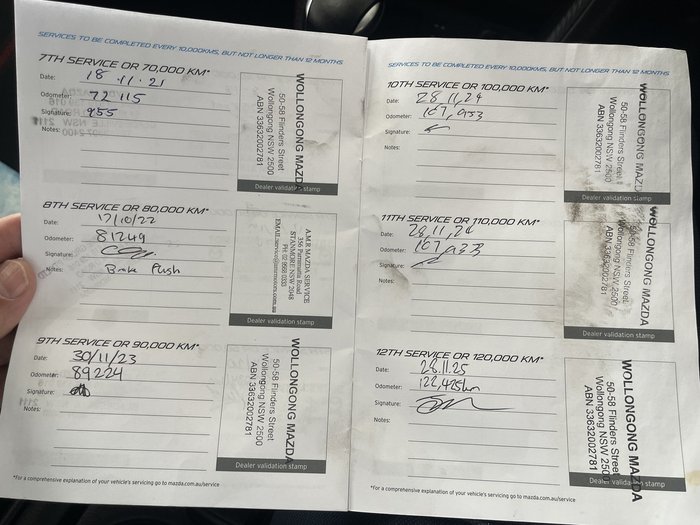 SERVICES TO BE COMPLETED EVERY 10,000KMS, BUT NOT LONGER THAN 12 MONTHS
7TH SERVICE OR 70,000 KM*
Date: 18.11.21
Odometer: 72115
Signature: 955
Notes:
WOLLONGONG MAZDA
50-58 Flinders Street
Wollongong NSW 2500
ABN 33632002781
Dealer validation stamp
8TH SERVICE OR 80,000 KM*
Date: 17/10/22
Odometer: 81249
Signature:
Notes: Brake Flush
A.M.R MAZDA SERVICE
356 Parramatta Road
STANMORE NSW 2048
Dealer validation stamp
9TH SERVICE OR 90,000 KM*
Date: 30/11/23
Odometer: 89224
Signature:
Notes:
WOLLONGONG MAZDA
50-58 Flinders Street
Wollongong NSW 2500
ABN 33632002781
Dealer validation stamp
*For a comprehensive explanation of your vehicle's servicing go to mazda.com.au/service
SERVICES TO BE COMPLETED EVERY 10,000KMS, BUT NOT LONGER THAN 12 MONTHS
10TH SERVICE OR 100,000 KM*
Date: 28,11,24
Odometer: 107,933
Signature:
Notes:
WOLLONGONG MAZDA
50-58 Flinders Street
Wollongong NSW 2500
ABN 33632002781
Dealer validation stamp
11TH SERVICE OR 110,000 KM*
Date: 28,11,24
Odometer: 107,933
Signature:
Notes:
WOLLONGONG MAZDA
50-58 Flinders Street
Wollongong NSW 2500
ABN 33632002781
Dealer validation stamp
12TH SERVICE OR 120,000 KM*
Date: 28.11.25
Odometer: 122,425km
Signature:
Notes:
WOLLONGONG MAZDA
50-58 Flinders Street
Wollongong NSW 2500
ABN 33632002781
Dealer validation stamp
*For a comprehensive explanation of your vehicle's servicing go to mazda.com.au/service